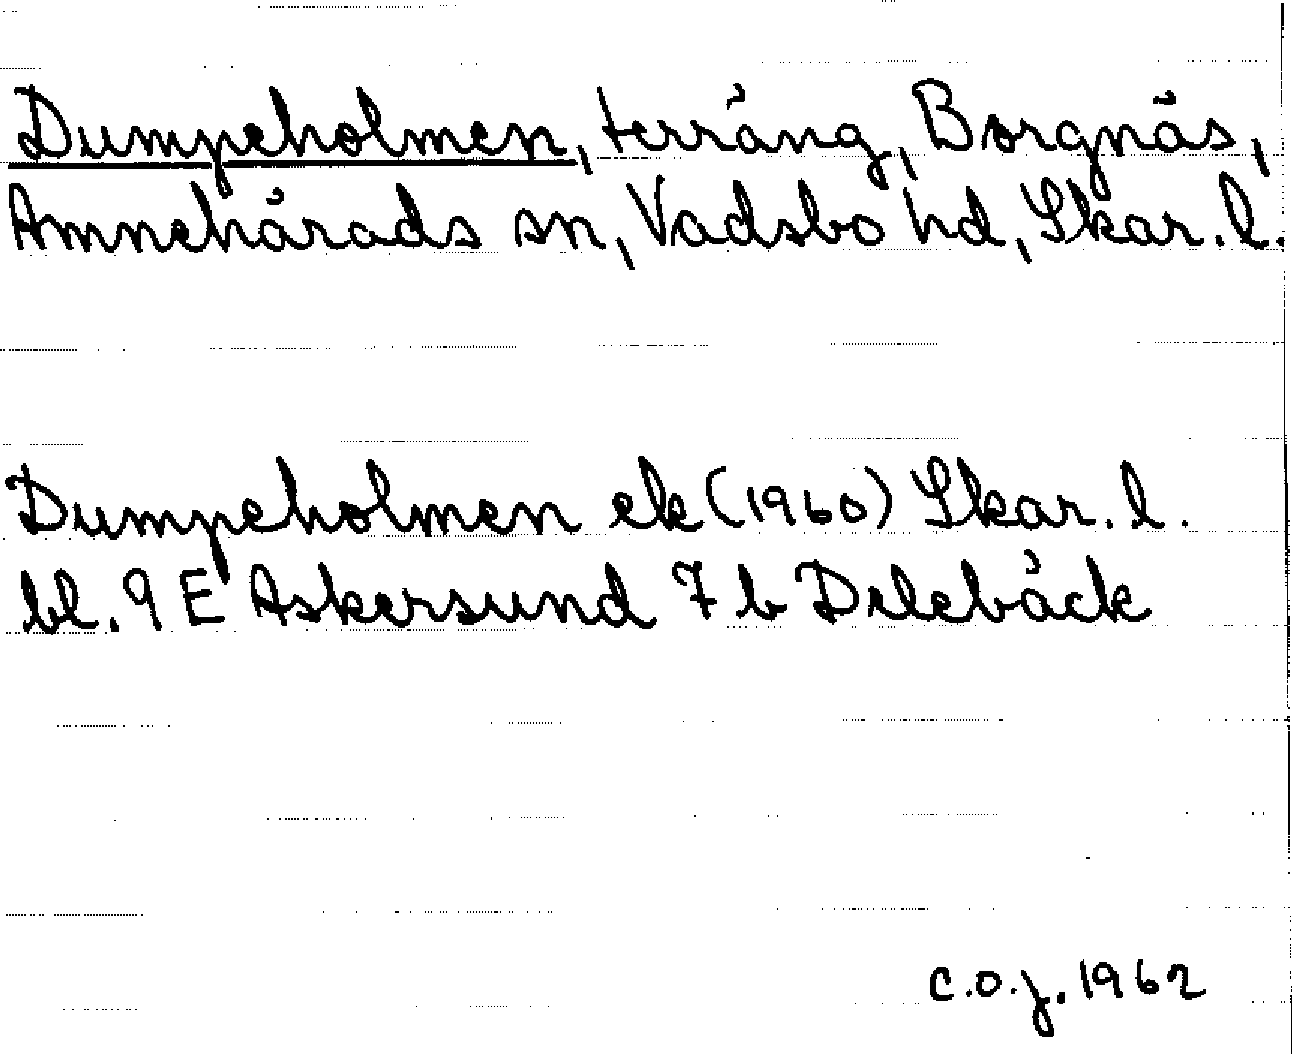 Dumpeholmen, terräng, Borgnäs,
Amnehärads sn, Vadsbo hd, Skar. l.
Dumpeholmen ek (1960) Skar. l.
bl. 9 E Askersund 7 b Delebäck
C.O.J. 1962